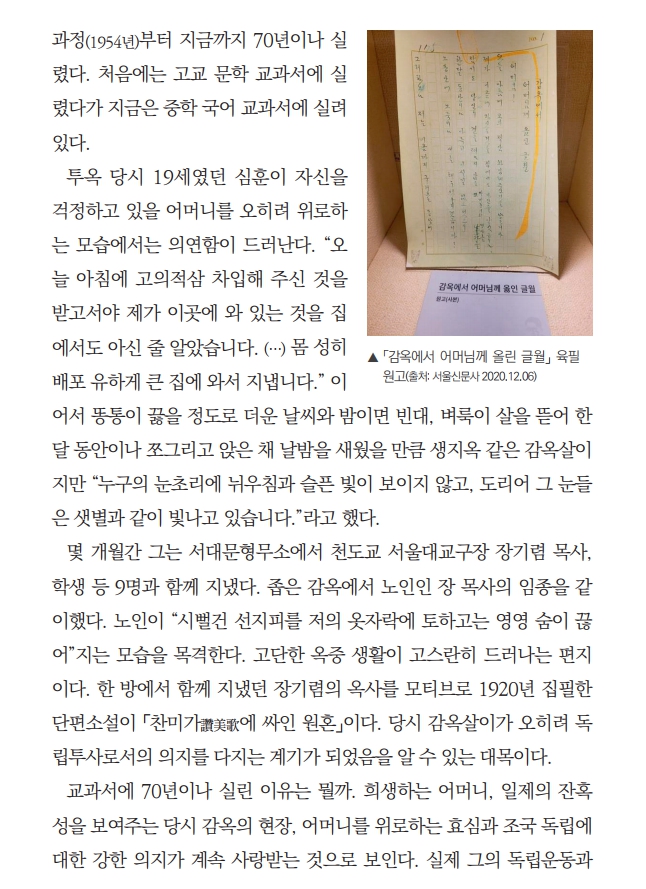 과정(1954년)부터 지금까지 70년이나 실
렸다. 처음에는 고교 문학 교과서에 실
렸다가 지금은 중학 국어 교과서에 실려
있다.
투옥 당시 19세였던 심훈이 자신을
걱정하고 있을 어머니를 오히려 위로하
는 모습에서는 의연함이 드러난다. “오
늘 아침에 고의적삼 차입해 주신 것을
받고서야 제가 이곳에 와 있는 것을 집
에서도 아신 줄 알았습니다. (…) 몸 성히
배포 유하게 큰 집에 와서 지냅니다.” 이
어서 똥통이 끓을 정도로 더운 날씨와 밤이면 빈대, 벼룩이 살을 뜯어 한
달 동안이나 쪼그리고 앉은 채 날밤을 새웠을 만큼 생지옥 같은 감옥살이
지만 “누구의 눈초리에 뉘우침과 슬픈 빛이 보이지 않고, 도리어 그 눈들
은 샛별과 같이 빛나고 있습니다.”라고 했다.
몇 개월간 그는 서대문형무소에서 천도교 서울대교구장 장기렴 목사,
학생 등 9명과 함께 지냈다. 좁은 감옥에서 노인인 장 목사의 임종을 같
이했다. 노인이 “시뻘건 선지피를 저의 옷자락에 토하고는 영영 숨이 끊
어”지는 모습을 목격한다. 고단한 옥중 생활이 고스란히 드러나는 편지
이다. 한 방에서 함께 지냈던 장기렴의 옥사를 모티브로 1920년 집필한
단편소설이 「찬미가讚美歌에 싸인 원혼」이다. 당시 감옥살이가 오히려 독
립투사로서의 의지를 다지는 계기가 되었음을 알 수 있는 대목이다.
교과서에 70년이나 실린 이유는 뭘까. 희생하는 어머니, 일제의 잔혹
성을 보여주는 당시 감옥의 현장, 어머니를 위로하는 효심과 조국 독립에
대한 강한 의지가 계속 사랑받는 것으로 보인다. 실제 그의 독립운동과
감옥에서 어머님께 올린 글월
원고(사본)
▲ 「감옥에서 어머님께 올린 글월」 육필
원고(출처: 서울신문사 2020.12.06)